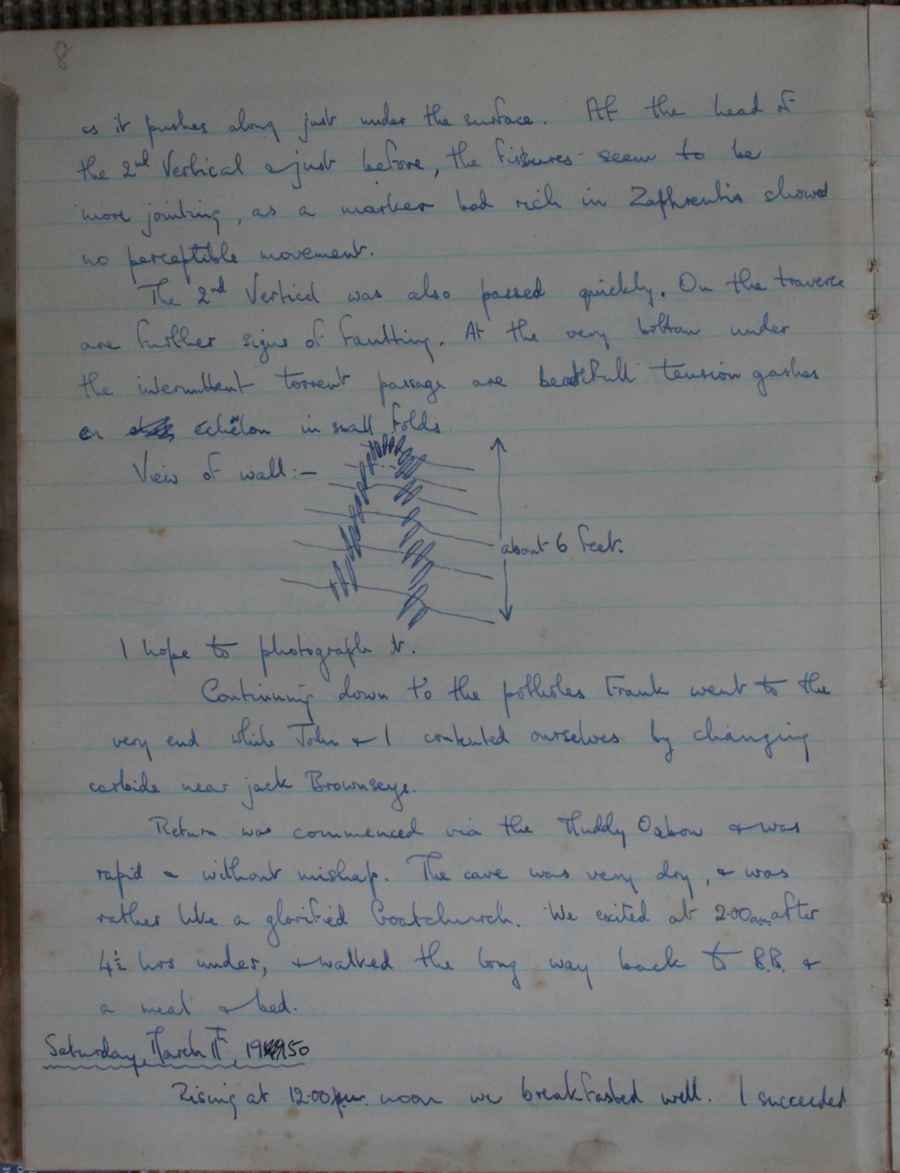 8
as it pushes along just under the surface. At the head of
the 2nd Vertical & just before, the fissures seem to be
more jointing, as a marker bed rich in Zaphrentis showed
no perceptible movement.
The 2nd Vertical was also passed quickly. On the traverse
are further signs of faulting. At the very bottom under
the intermittent torrent passage are beautifull tension gashes
en echélon in small folds
View of wall:-
about 6 feet.
I hope to photograph it.
Continuing down to the potholes Frank went to the
very end while John & I contented ourselves by changing
carbide near jack Brownseys.
Return was commenced via the Muddy Oxbow & was
rapid & without mishap. The cave was very dry, & was
rather like a glorified Goatchurch. We exited at 2.00am after
4½ hrs under, & walked the long way back to B.B. &
a meal & bed.
Saturday, March 11th, 1950
Rising at 12.00 noon we breakfasted well. I succeeded